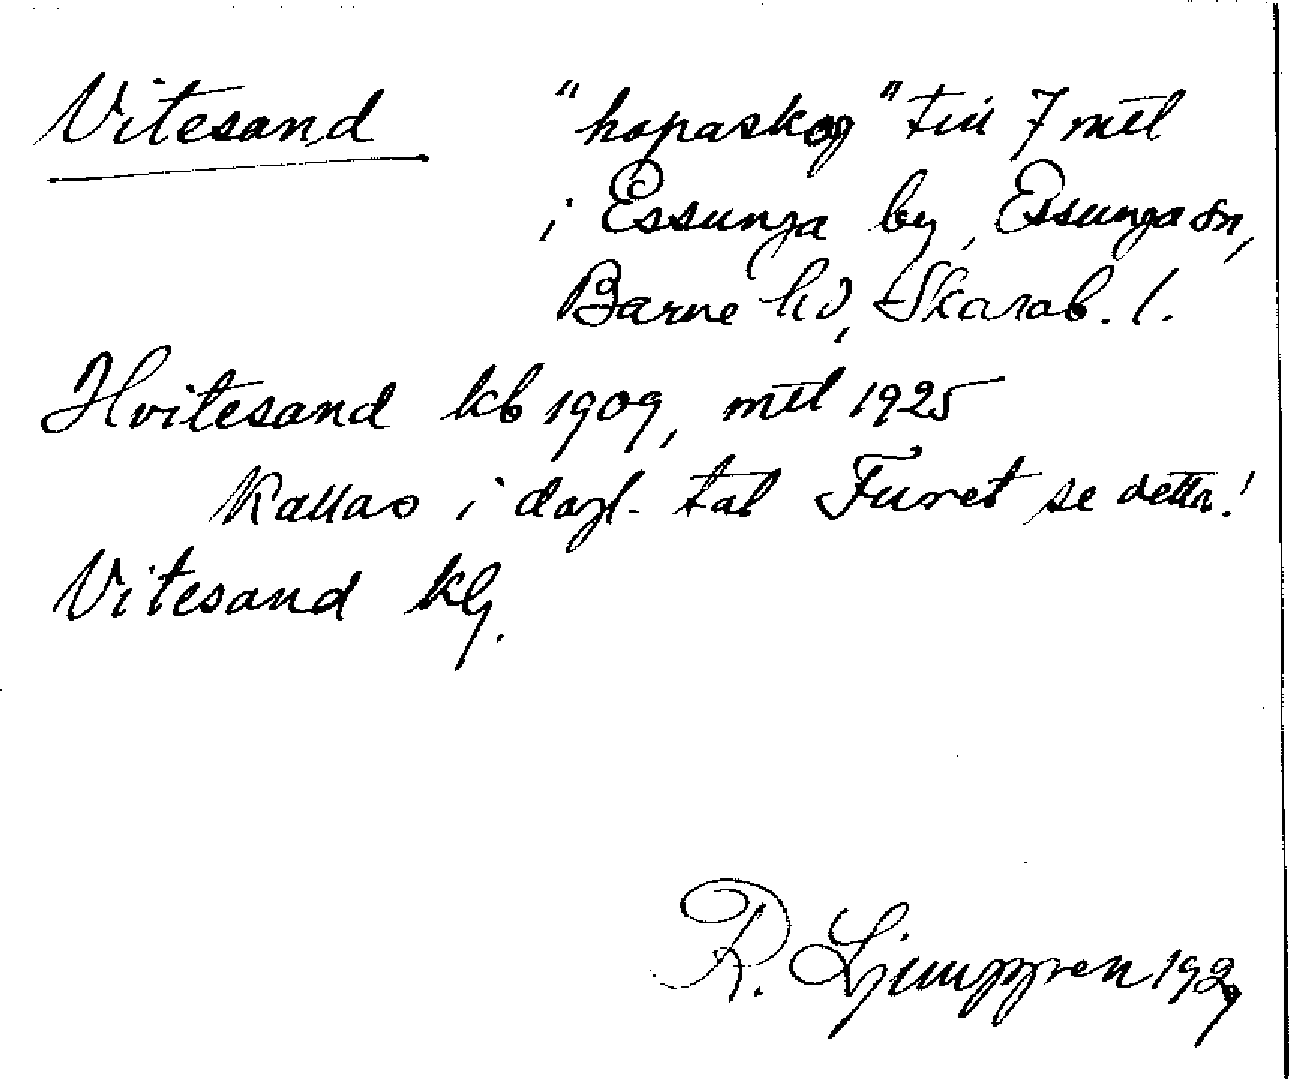 Vitesand "hopaskog" till 7 mtl
i Essunga by, Essunga sn,
Barne hd, Skarab. l.
Hvitesand kb 1909, mtl 1925
Kallas i dagl. tal Furet se detta!
Vitesand kg.
R. Ljunggren